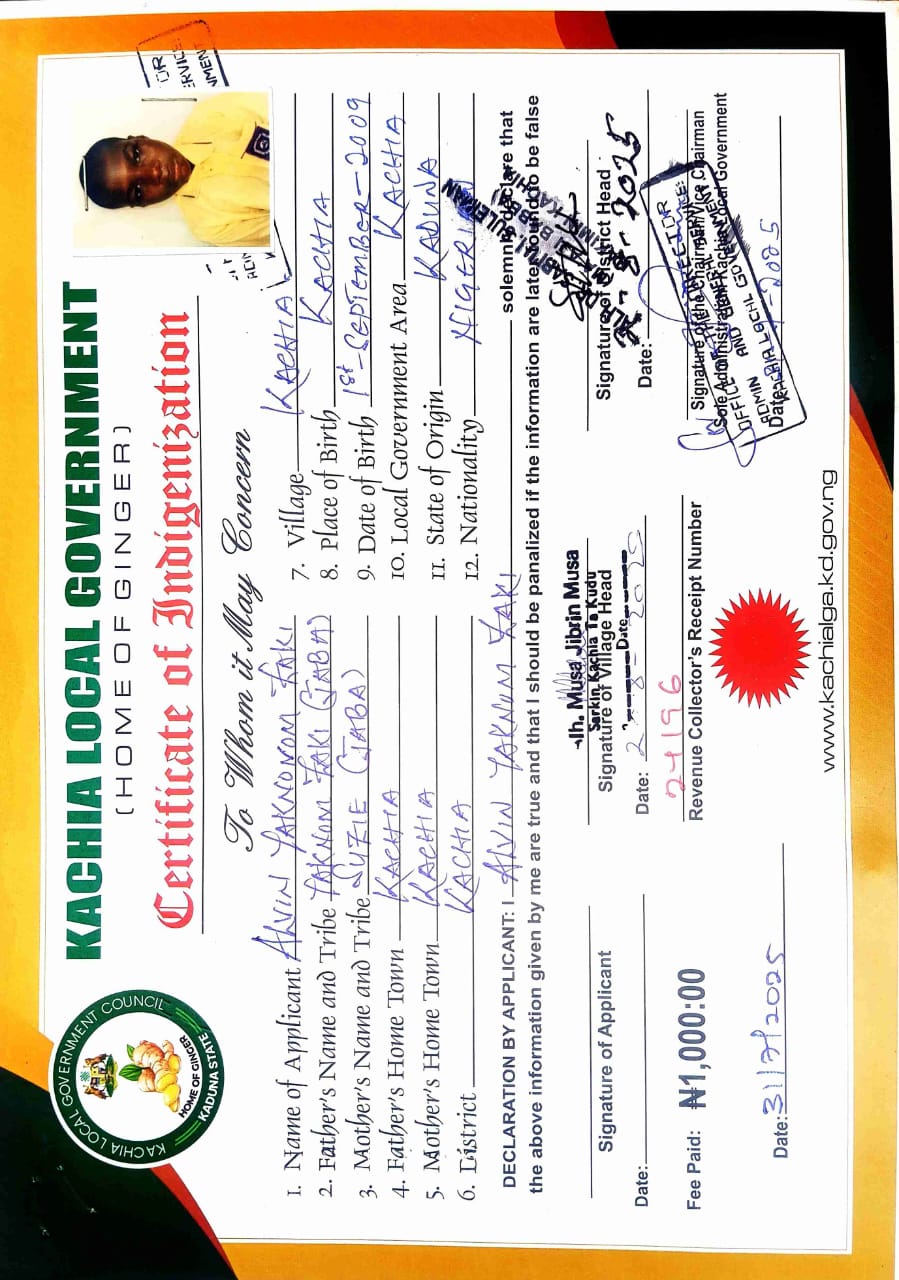 KACHIA LOCAL GOVERNMENT
(HOME OF GINGER)
Certificate of Indigenization
To Whom it May Concern
KACHIA LOCAL GOVERNMENT COUNCIL
HOME OF GINGER
KADUNA STATE
1. Name of Applicant ALVIN YAKNONOM ZAKI
2. Father's Name and Tribe YAKNOM ZAKI (JABA)
3. Mother's Name and Tribe SUZIE (JABA)
4. Father's Home Town KACHIA
5. Mother's Home Town KACHIA
6. District KACHIA
7. Village KACHIA
8. Place of Birth KACHIA
9. Date of Birth 1st-SEPTEMBOR-2009
10. Local Government Area KACHIA
11. State of Origin KADUNA
12. Nationality NIGERIAN
DECLARATION BY APPLICANT: I ALVIN YAKNOM ZAKI solemnly declare that
the above information given by me are true and that I should be panalized if the information are later found to be false
Signature of Applicant
Date:
Alh. Musa Jibrin Musa
Sarkin Kachia Ta Kudu
Signature of Village Head
Date
Date: 2 - 8 - 2025
Signature of District Head
8 - 2025
Date:
Fee Paid: ₦1,000:00
24196
Revenue Collector's Receipt Number
Signature of the Chairman/Vice Chairman
Sole Administrator Kachia Local Government
OFFICE
ADMIN AND
Date:
Date: 31/7/2025
www.kachialga.kd.gov.ng